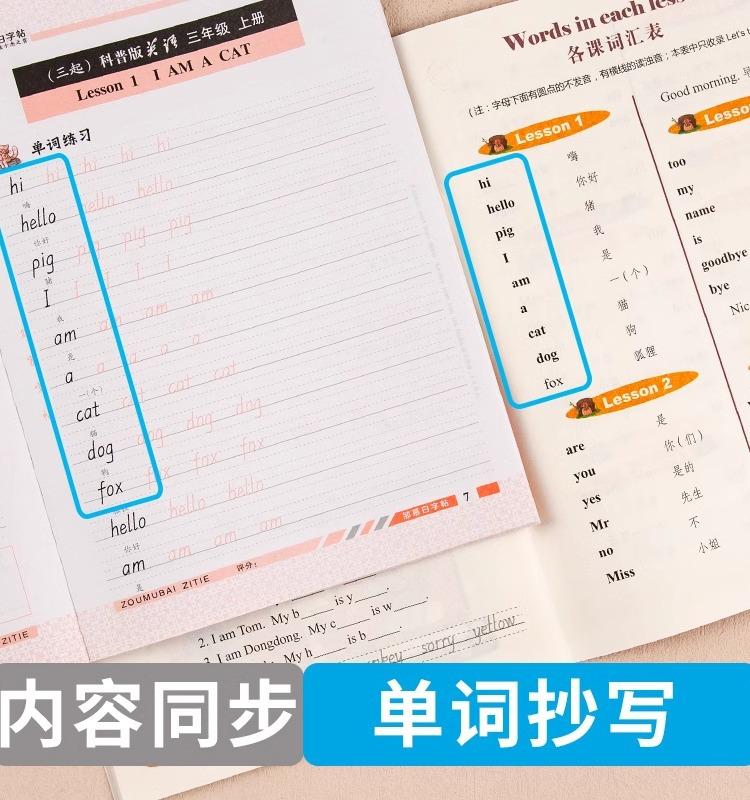 白字帖
（三起）科普版英语 三年级 上册
Lesson 1 I AM A CAT
单词练习
hi hi hi hi hi
嗨
hello hello hello
你好
pig pig pig pig
猪
I I I I I
我
am am am am
是
a a a a a
一(个)
cat cat cat cat
猫
dog dog dog dog
狗
fox fox fox fox
hello hello hello
你好
am am am am
是
ZOUMUBAI ZITIE
评分：
邹慕白字帖
7
ZITIE
Words in each
各课词汇表
（注：字母下面有圆点的不发音，有横线的读浊音；本表中只收录 Let's
Lesson 1
hi 嗨
hello 你好
pig 猪
I 我
am 是
a 一(个)
cat 猫
dog 狗
fox 狐狸
Lesson 2
are 是
you 你(们)
yes 是的
Mr 先生
no 不
Miss 小姐
Good morning.
too
my
name
is
goodbye
bye
2. I am Tom. My b____ is y____.
3. I am Dongdong. My c____ is w____.
My h____ is b____.
sorry yellow
内容同步
单词抄写